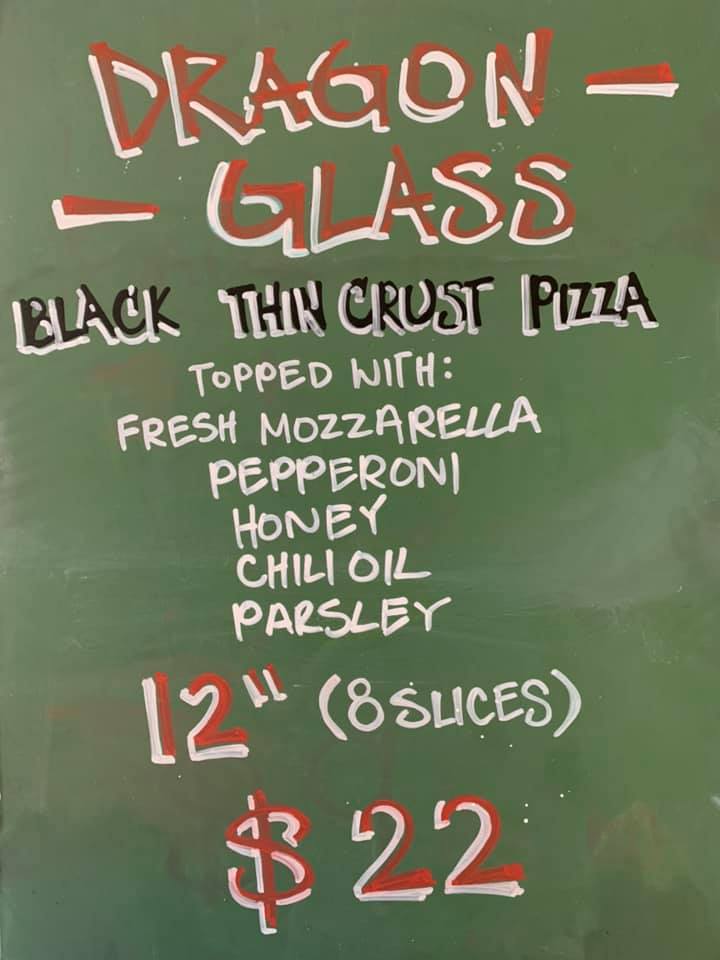 DRAGON -
- GLASS
BLACK THIN CRUST PIZZA
TOPPED WITH:
FRESH MOZZARELLA
PEPPERONI
HONEY
CHILI OIL
PARSLEY
12" (8 SLICES)
$22